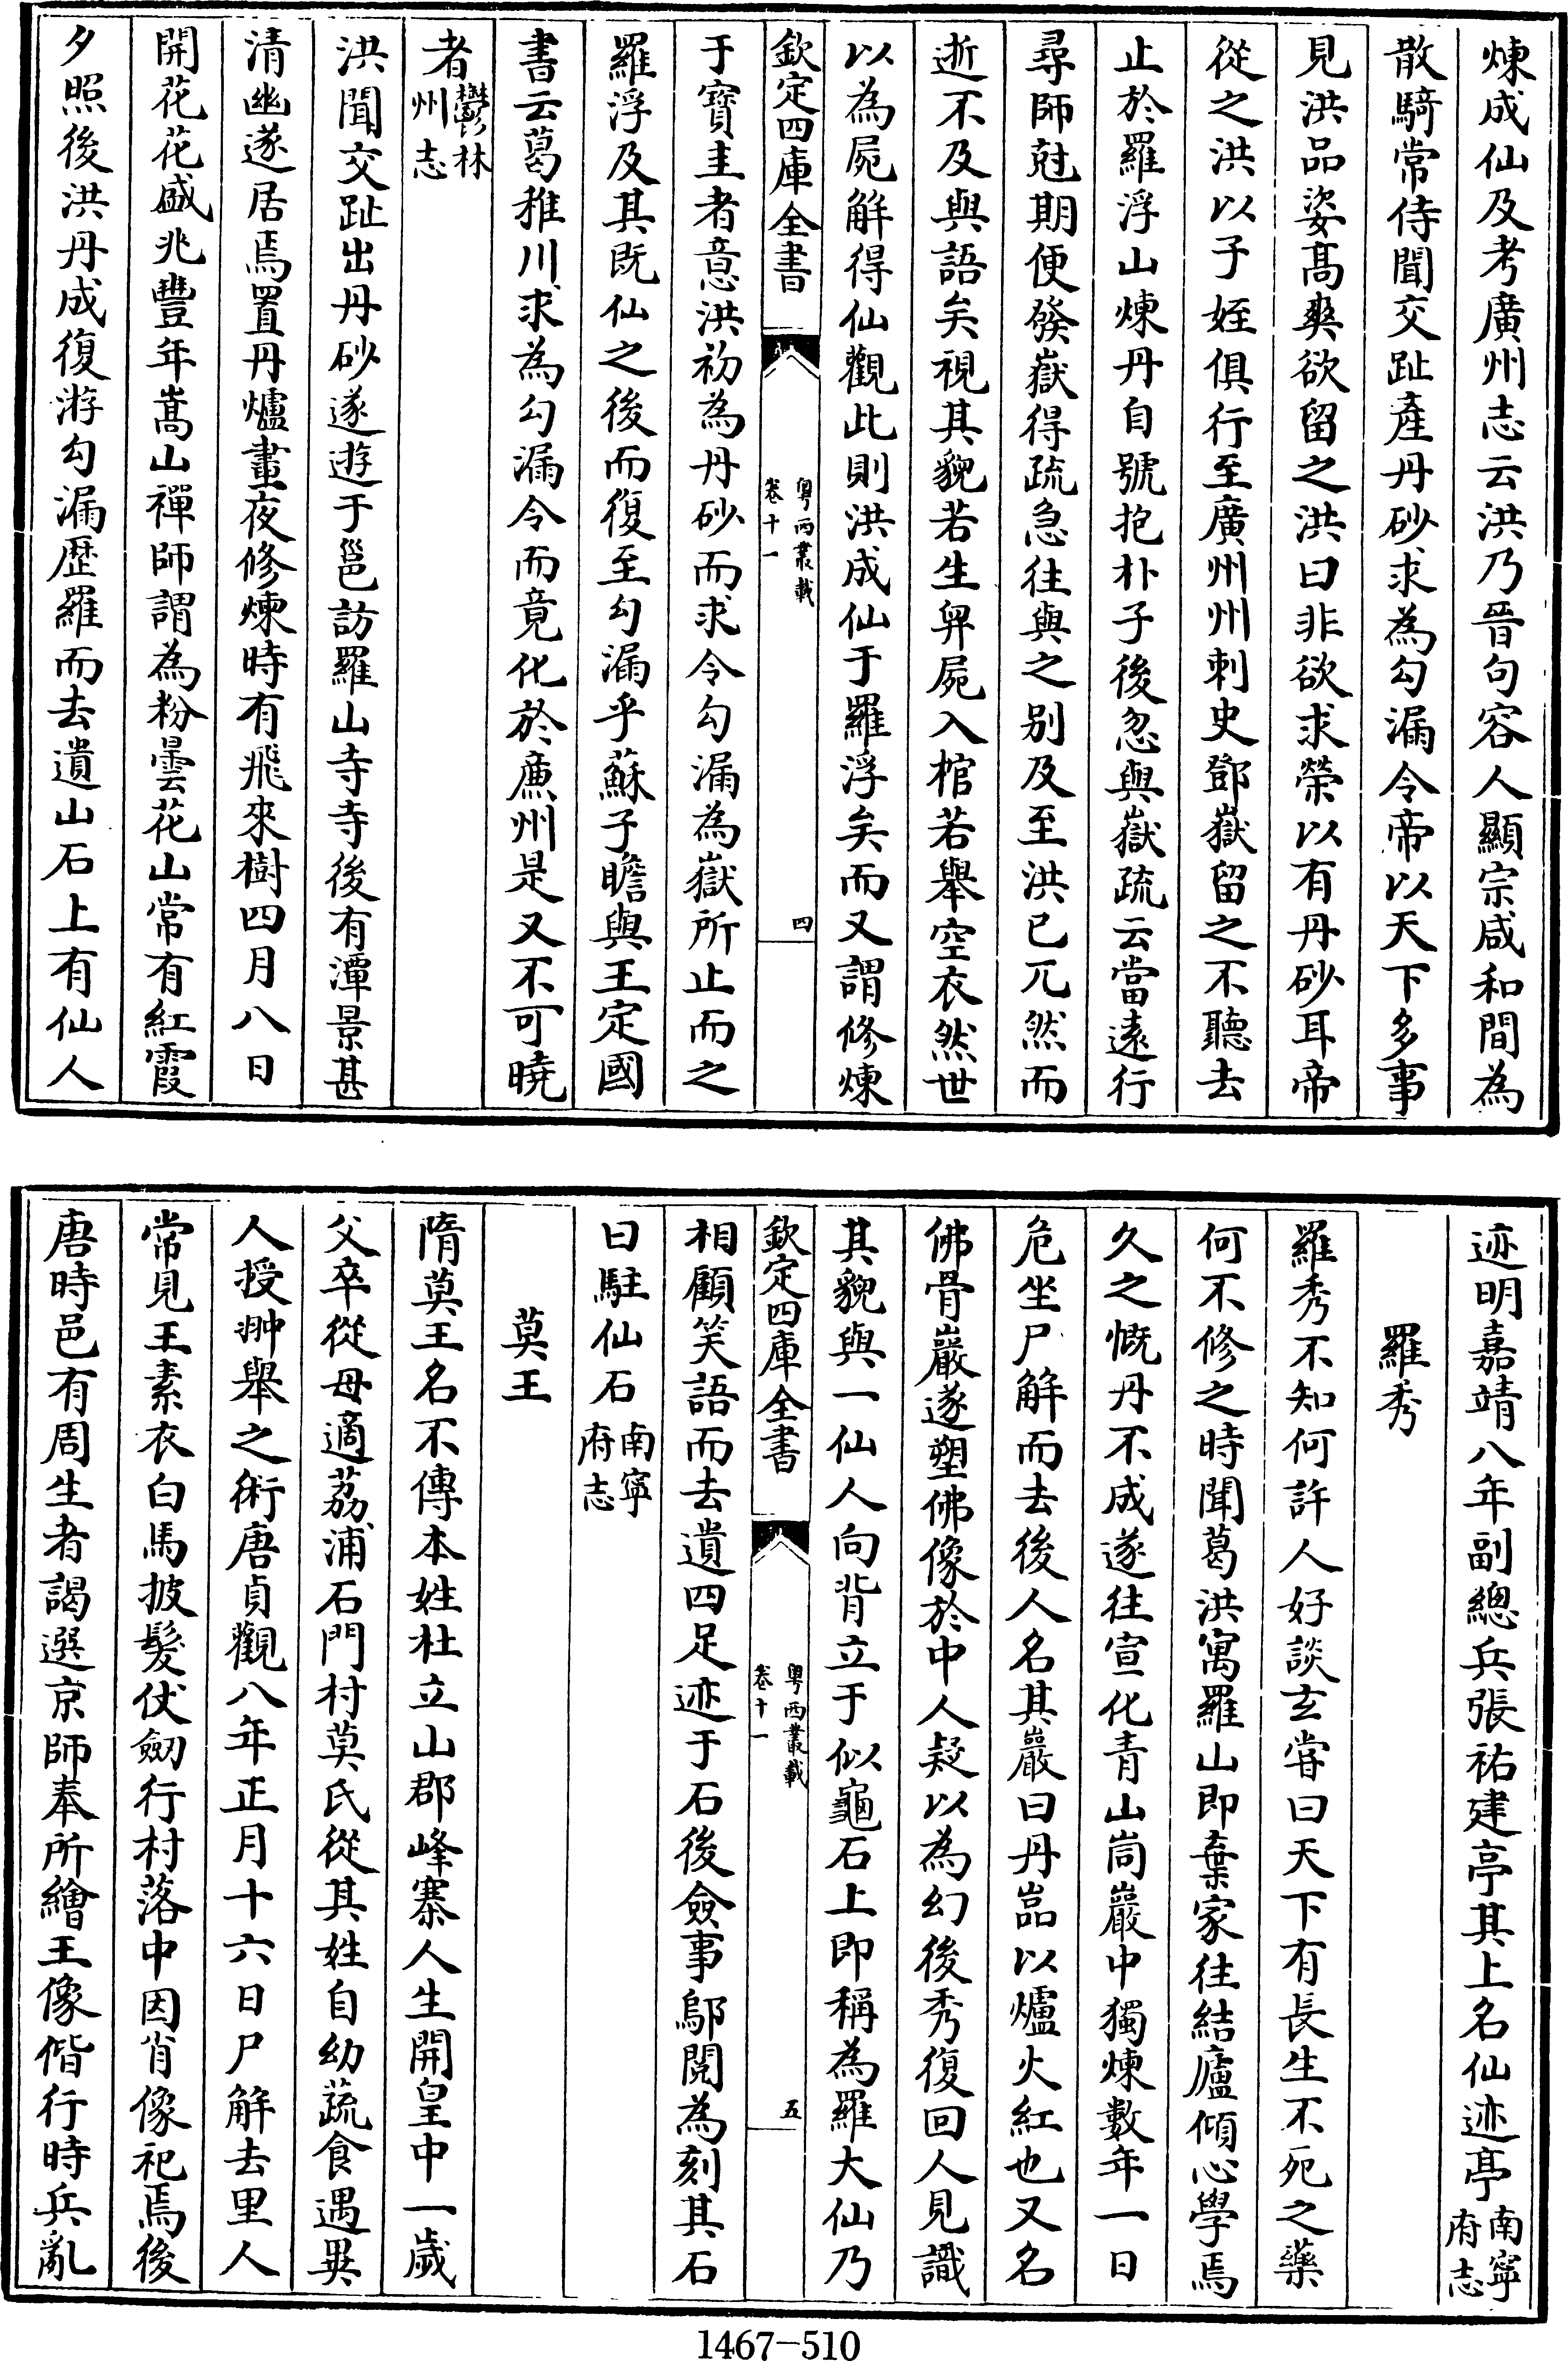 煉成仙及考廣州志云洪乃晉句容人顯宗咸和間為
散騎常侍聞交趾產丹砂求為勾漏令帝以天下多事
見洪品姿高爽欲留之洪曰非欲求榮以有丹砂耳帝
從之洪以子姪俱行至廣州州刺史鄧嶽留之不聽去
止於羅浮山煉丹自號抱朴子後忽與嶽疏云當遠行
尋師尅期便發嶽得疏急往與之別及至洪已兀然而
逝不及與語矣視其貌若生舁屍入棺若舉空衣然世
以為屍解得仙觀此則洪成仙于羅浮矣而又謂修煉
欽定四庫全書
粵西叢載
卷十一
四
于寶圭者意洪初為丹砂而求令勾漏為嶽所止而之
羅浮及其既仙之後而復至勾漏乎蘇子瞻與王定國
書云葛稚川求為勾漏令而竟化於廉州是又不可曉
者鬱林
州志
洪聞交趾出丹砂遂遊于邕訪羅山寺寺後有潭景甚
清幽遂居焉置丹爐晝夜修煉時有飛來樹四月八日
開花花盛兆豐年嵩山禪師謂為粉曇花山常有紅霞
夕照後洪丹成復游勾漏歷羅而去遺山石上有仙人
迹明嘉靖八年副總兵張祐建亭其上名仙迹亭南寧
府志
羅秀
羅秀不知何許人好談玄嘗曰天下有長生不死之藥
何不修之時聞葛洪寓羅山即棄家往結廬傾心學焉
久之慨丹不成遂往宣化青山峝巖中獨煉數年一日
危坐尸解而去後人名其巖曰丹嵓以爐火紅也又名
佛骨巖遂塑佛像於中人疑以為幻後秀復回人見識
其貌與一仙人向背立于似龜石上即稱為羅大仙乃
欽定四庫全書
粵西叢載
卷十一
五
相顧笑語而去遺四足迹于石後僉事鄔閱為刻其石
曰駐仙石南寧
府志
莫王
隋莫王名不傳本姓杜立山郡峰寨人生開皇中一歲
父卒從母適荔浦石門村莫氏從其姓自幼蔬食遇異
人授翀舉之術唐貞觀八年正月十六日尸解去里人
常見王素衣白馬披髮仗劒行村落中因肖像祀焉後
唐時邑有周生者謁選京師奉所繪王像偕行時兵亂
1467-510